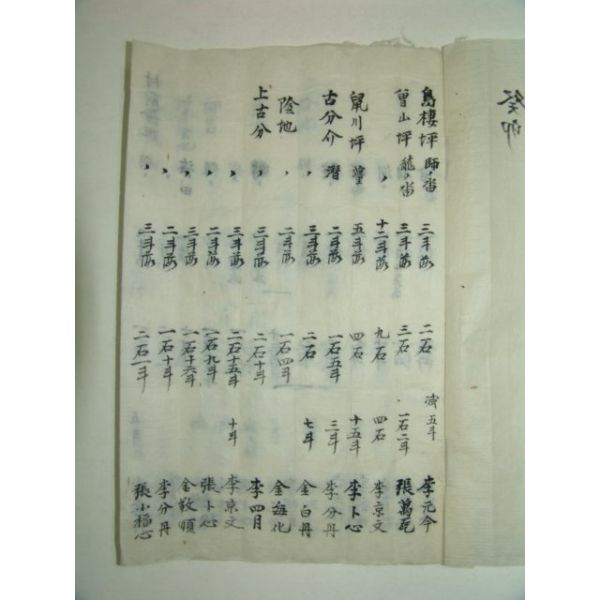 癸卯
鳥棲坪 師ノ畓 三斗落 二石 減五斗 李元今
曾山坪 龍ノ畓 三斗落 三石 一石二斗 張萬石
〃 十二斗落 九石 四石 李京文
鼠川坪 五斗落 四石 十五斗 李卜心
古分介 潛 二斗落 一石五斗 三斗 李分丹
〃 三斗落 二石 七斗 金白丹
陰地 〃 二斗落 一石四斗 金每化
上古分 〃 三斗落 二石十斗 李四月
〃 三斗落 二石十五斗 十斗 李京文
〃 二斗落 一石九斗 張卜心
〃 三斗落 一石十六斗 金敬順
〃 二斗落 一石十斗 李分丹
〃 三斗落 二石一斗 張小福心